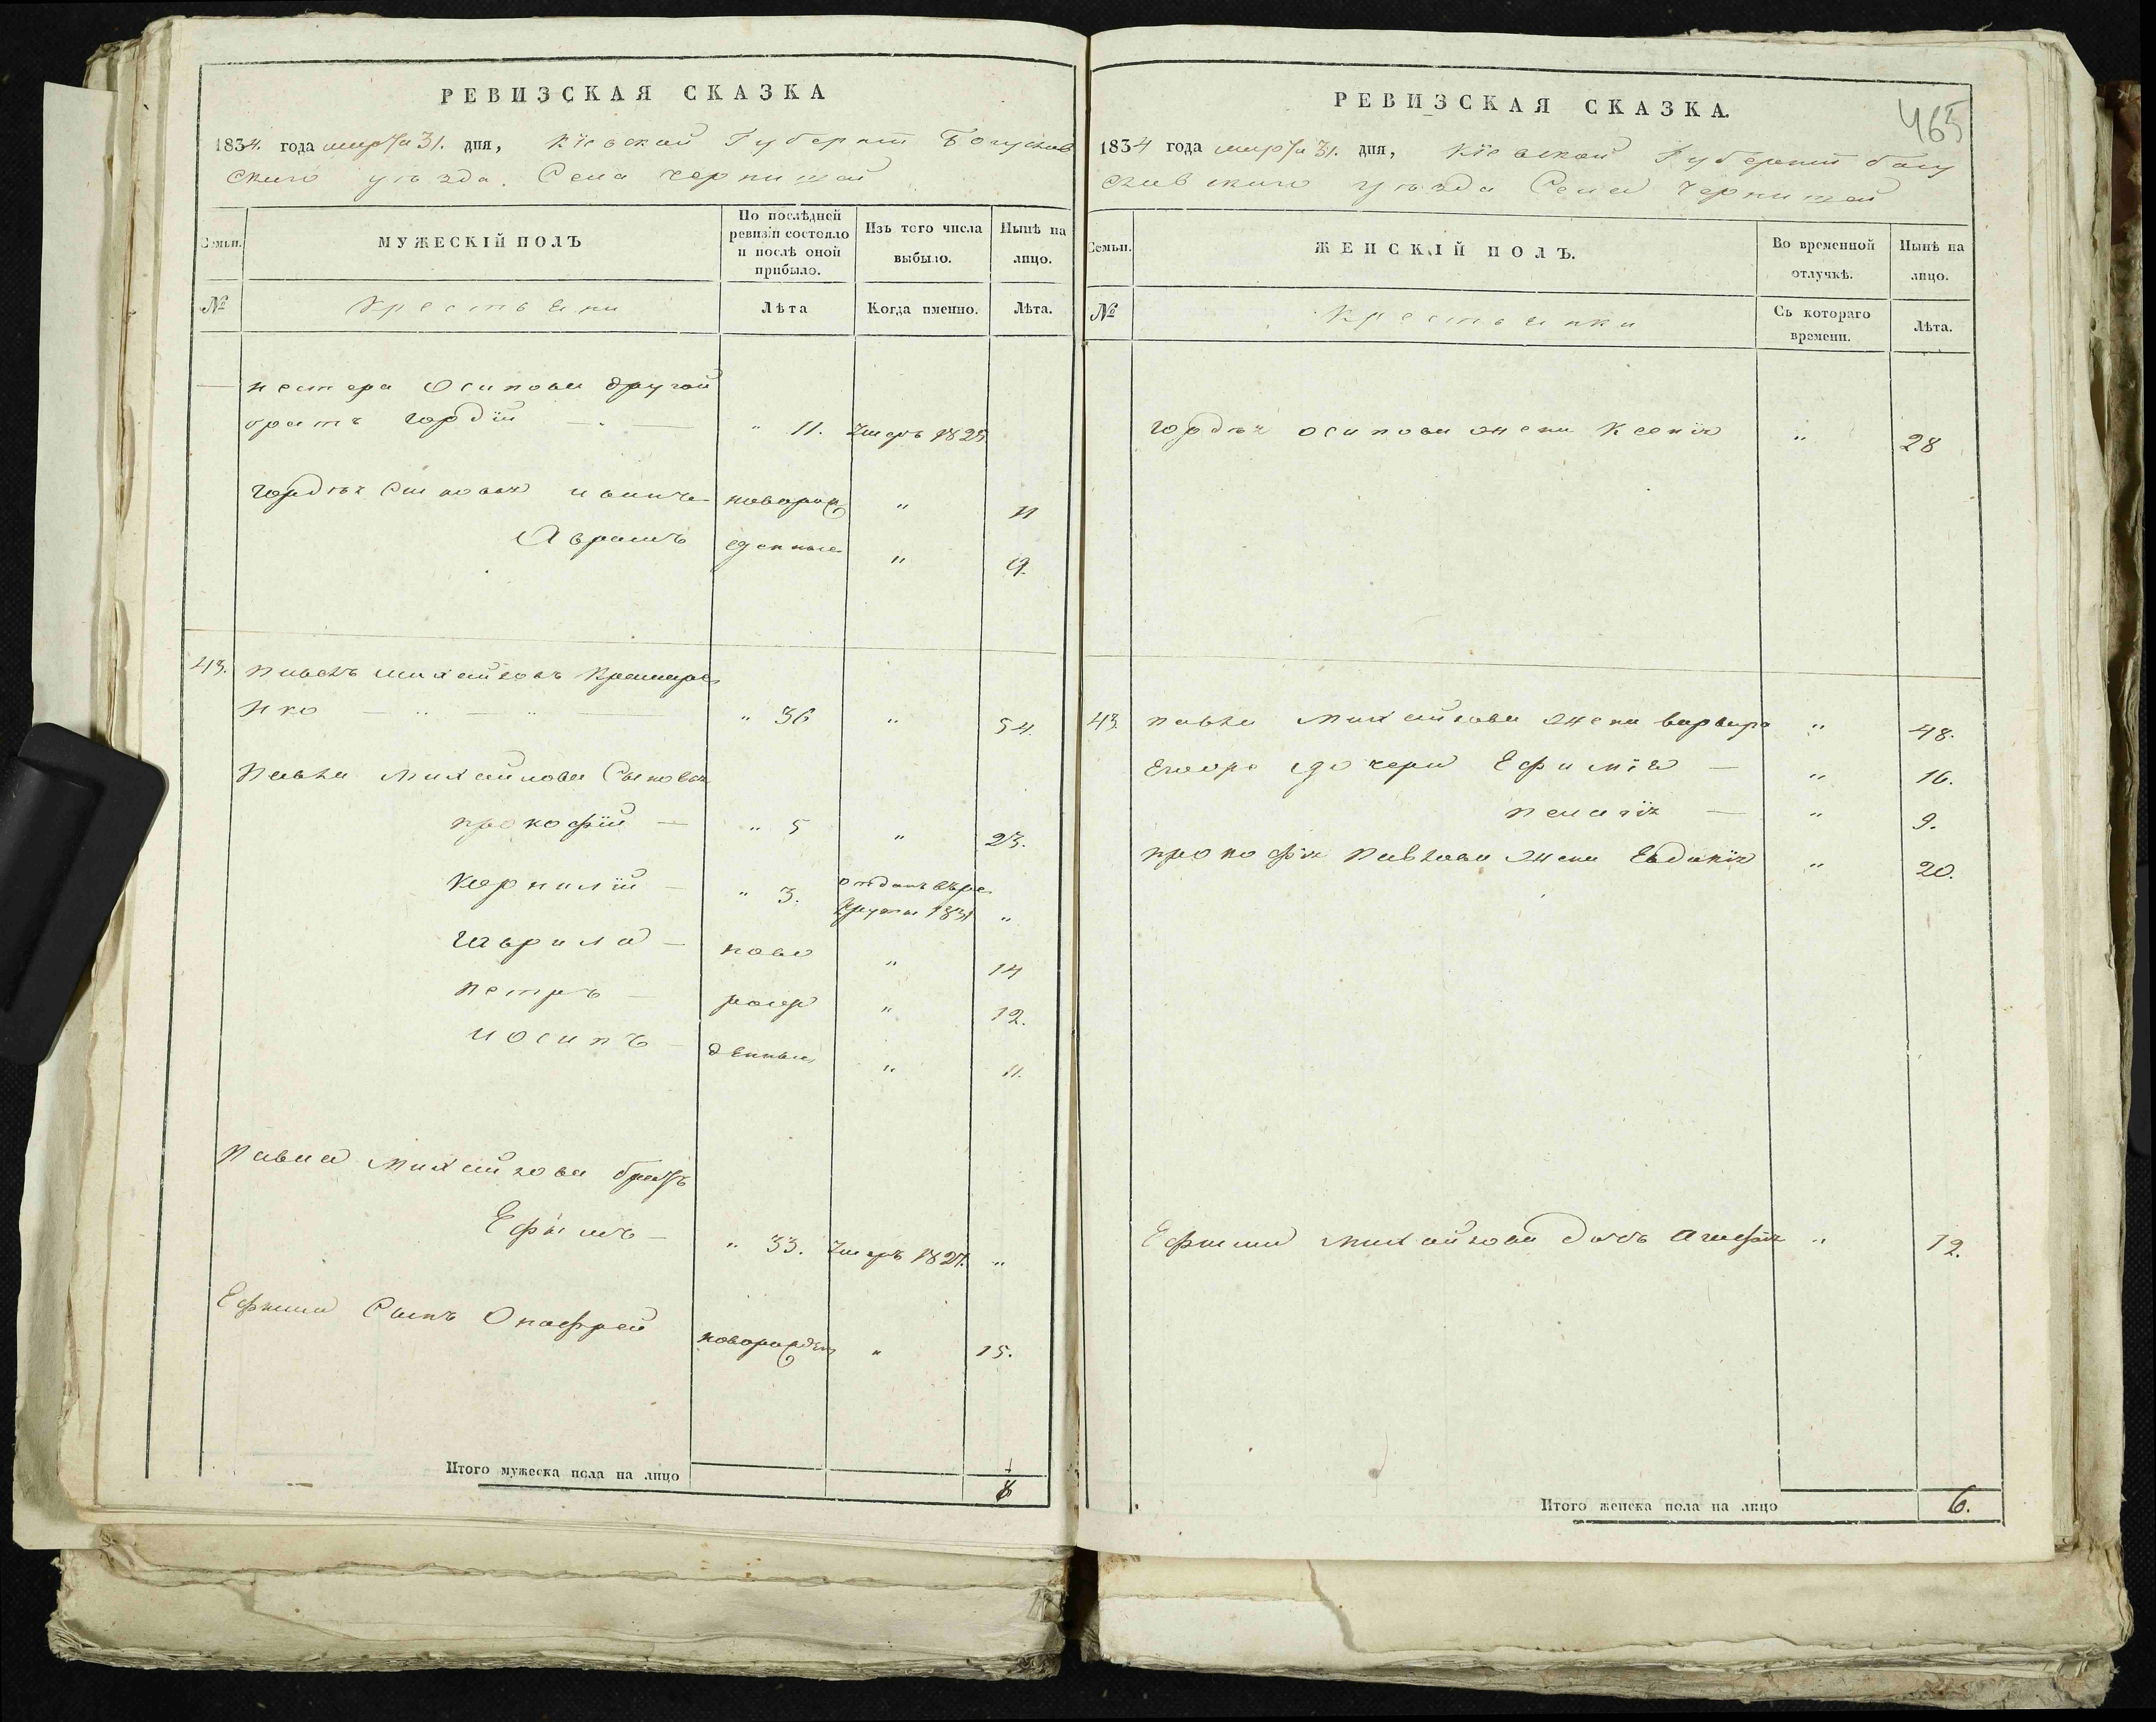 РЕВИЗСКАЯ СКАЗКА
1834. года марта 31. дня, Кіевской Губерніи Богуслав
скаго уѣзда. Села Чернишей
Семьи.
МУЖЕСКІЙ ПОЛЪ
По послѣдней ревизіи состояло и послѣ оной прибыло.
Изъ того числа выбыло.
Нынѣ на лицо.
№
Крестьяни
Лѣта
Когда именно.
Лѣта.
— нестера Осипова другой
братъ Гордій — " — " 11. Умеръ 1825
Гордѣя Сыновья иванъ новорож " 11
Аврамъ денные " 9.
43. павелъ михайловъ Крамаре
нко — " — " — " 36 " 54.
павла михайлова Сыновья
прокофій — " 5 " 23.
Корнилій — " 3. отданъ въре
круты 1831 "
гаврила — ново " 14
петръ — рож " 12.
иосипъ — денные " 11.
павла михайлова братъ
Ефимъ — " 33. Умеръ 1827. "
Ефима Сынъ Онофрей новорожден " 15.
Итого мужеска пола на лицо 8
465
РЕВИЗСКАЯ СКАЗКА.
1834 года марта 31. дня, Кіевской Губерніи богу
славскаго уѣзда Села Чернишей
Семьи.
ЖЕНСКІЙ ПОЛЪ.
Во временной отлучкѣ.
Нынѣ на лицо.
№
Крестьянки
Съ котораго времени.
Лѣта.
Гордѣя осипова жена Ксенія " 28
43. павла михайлова жена варвара " 48.
Егоо дочери Ефимія — " 16.
пелагія — " 9.
прокофія павлова жена Евдокія " 20.
Ефима михайлова дочь Агафія " 12.
Итого женска пола на лицо 6.